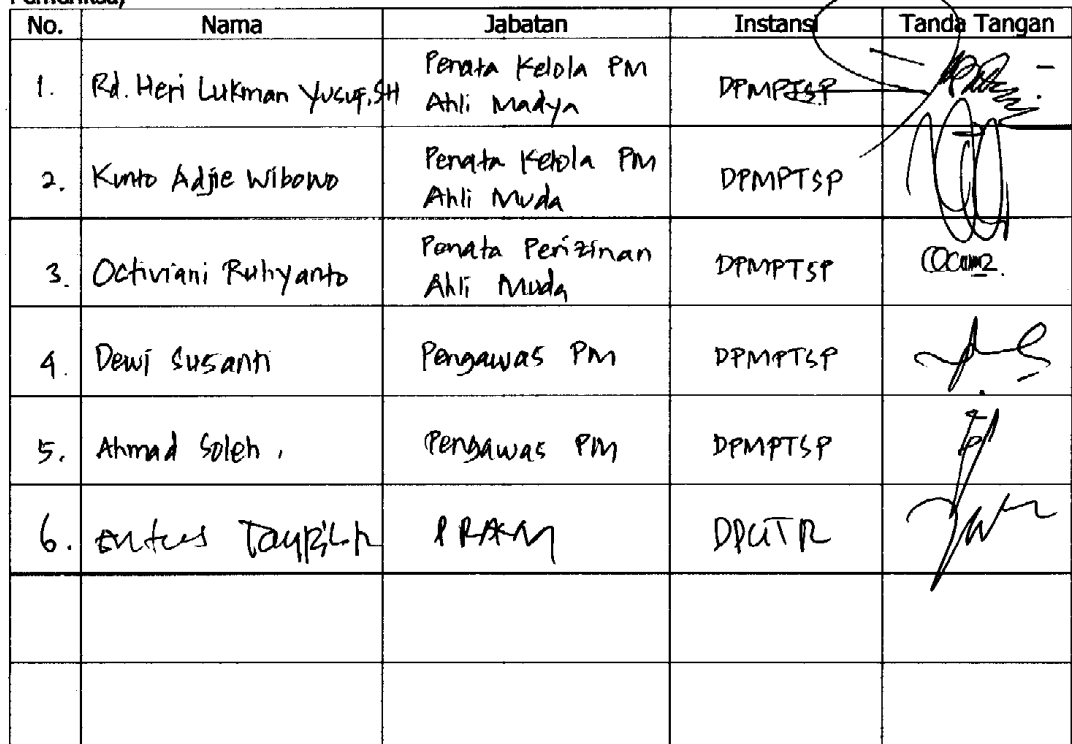 No. Nama Jabatan Instansi Tanda Tangan
1. Rd. Heri Lukman Yusuf, SH Penata Kelola PM Ahli Madya DPMPTSP
2. Kunto Adjie Wibowo Penata Kelola PM Ahli Muda DPMPTSP
3. Octiviani Ruhyanto Penata Perizinan Ahli Muda DPMPTSP
4. Dewi Susanti Pengawas PM DPMPTSP
5. Ahmad Soleh, Pengawas PM DPMPTSP
6. DPUTR